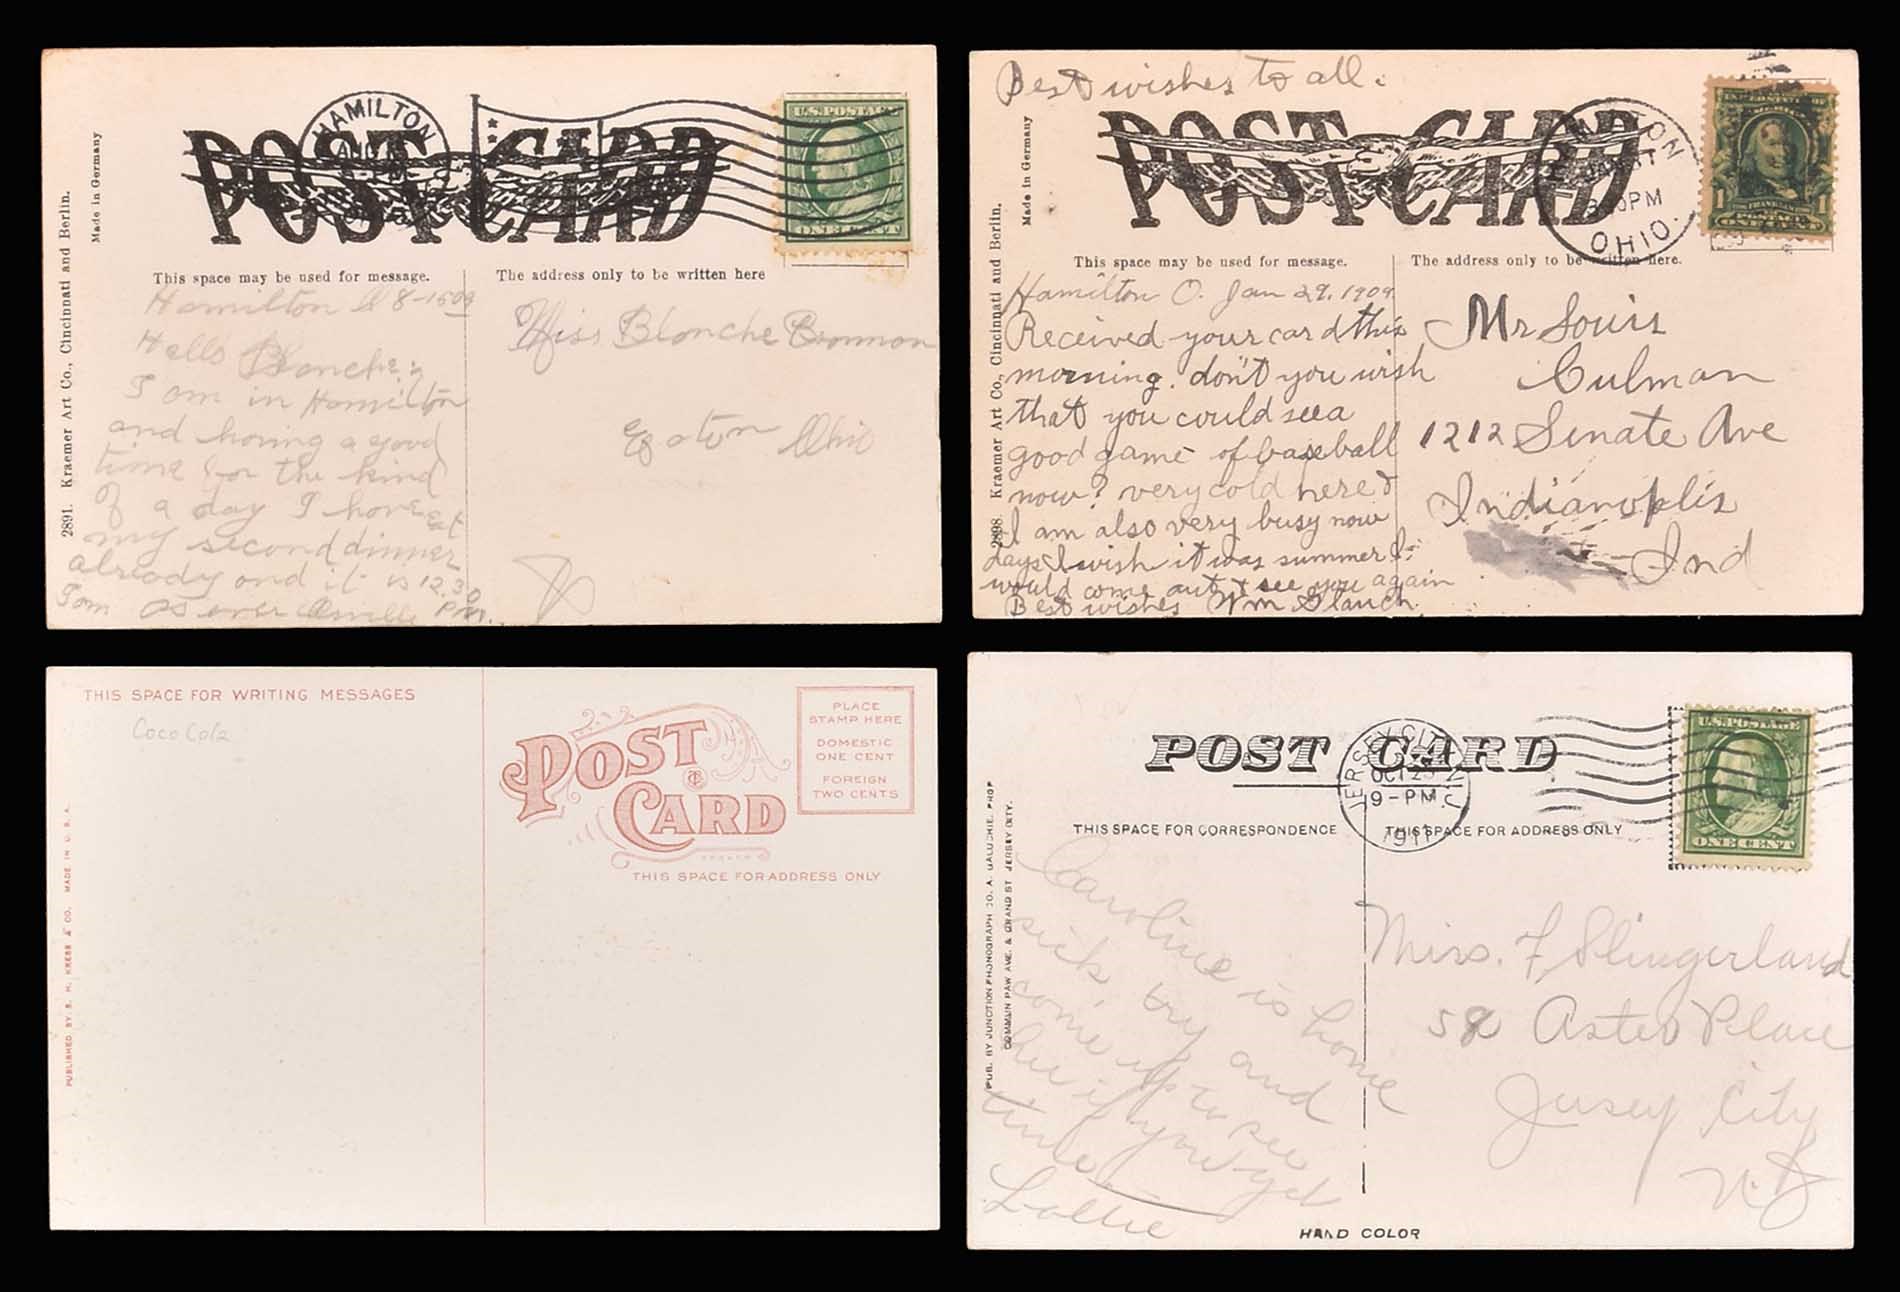 2891. Kraemer Art Co., Cincinnati and Berlin.
Made in Germany
POST CARD
HAMILTON
U.S. POSTAGE
ONE CENT
This space may be used for message.
The address only to be written here
Hamilton O 8-15 09
Hello Blanche;
I am in Hamilton
and having a good
time for the kind
of a day I have eat
my second dinner
already and it is 12.30
PM.
I am as ever Orville
Miss Blanche Bronnon
Eaton Ohio
Best wishes to all.
2898. Kraemer Art Co., Cincinnati and Berlin.
Made in Germany
POST CARD
HAMILTON
JAN
PM
OHIO.
1 1
This space may be used for message.
The address only to be written here.
Hamilton O. Jan 29, 1909
Received your card this
morning. don't you wish
that you could see a
good game of baseball
now? very cold here &
I am also very busy now
days I wish it was summer I
would come out & see you again
Best wishes Wm Slauch
Mr Louis
Culman
1212 Senate Ave
Indianoplis
Ind
THIS SPACE FOR WRITING MESSAGES
Coco Cola
PUBLISHED BY S. H. KRESS & CO. MADE IN U. S. A.
POST CARD
PLACE
STAMP HERE
DOMESTIC
ONE CENT
FOREIGN
TWO CENTS
THIS SPACE FOR ADDRESS ONLY
PUB. BY JUNCTION PHONOGRAPH CO. A. GALUCHIE, PROP
COMMUNIPAW AVE. & GRAND ST JERSEY CITY.
POST CARD
JERSEY CITY, N.J.
OCT 23
9-PM
1911
U.S. POSTAGE
ONE CENT
THIS SPACE FOR CORRESPONDENCE
THIS SPACE FOR ADDRESS ONLY
Caroline is home
sick try and
come up to see
her if you get
time
Lollie
Miss. F Slingerland
58 Astor Place
Jersey City
N. J
HAND COLOR